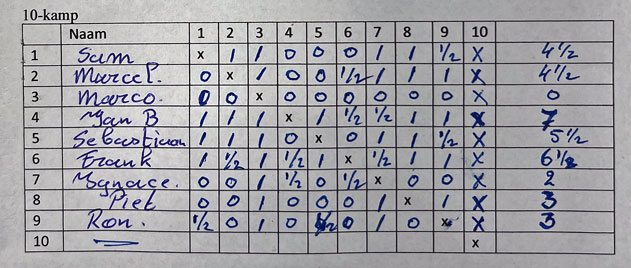 10-kamp
Naam 1 2 3 4 5 6 7 8 9 10
1 Sam x 1 1 0 0 0 1 1 ½ x 4½
2 Marcel. 0 x 1 0 0 ½ 1 1 1 x 4½
3 Marco. 0 0 x 0 0 0 0 0 0 x 0
4 Jan B 1 1 1 x 1 ½ ½ 1 1 x 7
5 Sebastiaan 1 1 1 0 x 0 1 1 ½ x 5½
6 Frank 1 ½ 1 ½ 1 x ½ 1 1 x 6½
7 Ignace. 0 0 1 ½ 0 ½ x 0 0 x 2
8 Piet 0 0 1 0 0 0 1 x 1 x 3
9 Ron. ½ 0 1 0 ½ 0 1 0 x x 3
10 x